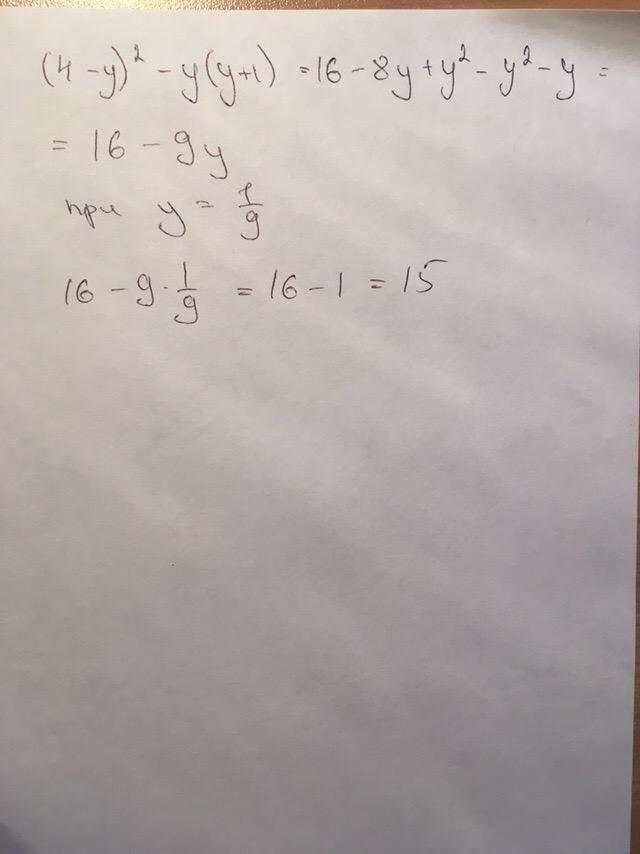 (4 - y)² - y(y+1) = 16 - 8y + y² - y² - y =
= 16 - 9y
при y = 1/9
16 - 9 · 1/9 = 16 - 1 = 15